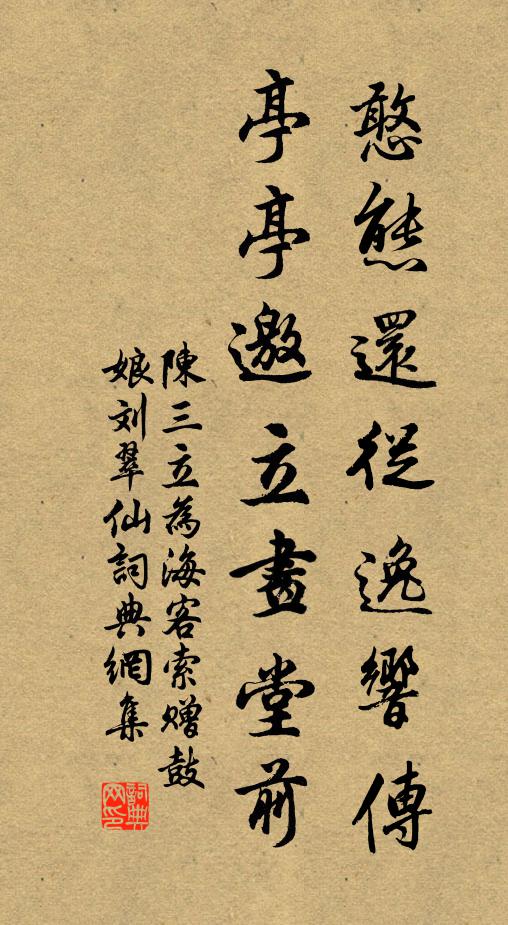 憨態還從逸響傳
亭亭邀立畫堂前
陳三立為海客索赠鼓
娘刘翠仙詞典網集
詞典网印